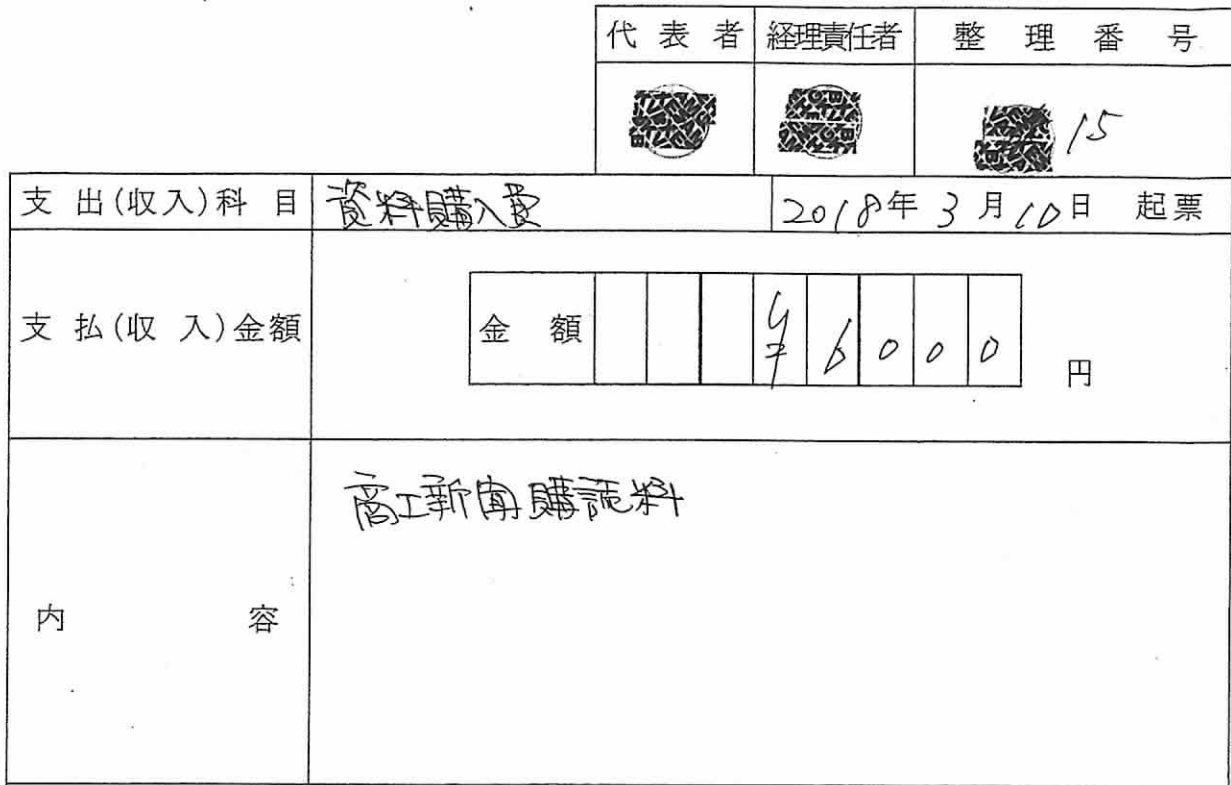 代表者 経理責任者 整理番号
15
支出(収入)科目 資料購入費 2018年3月10日 起票
支払(収入)金額 金額 ¥6000 円
内容 商工新聞購読料